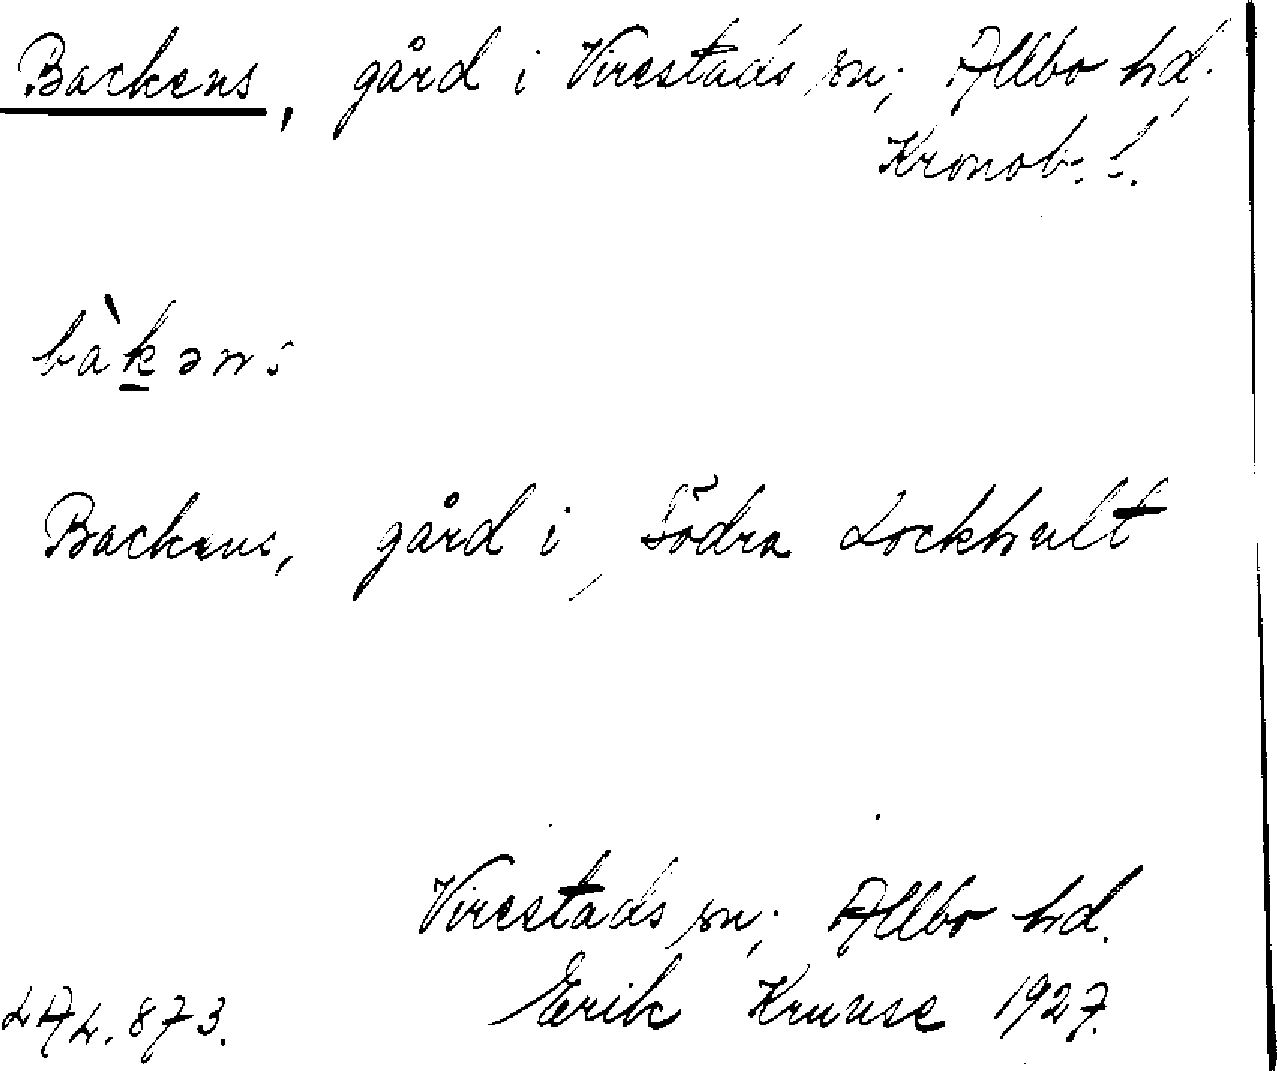 Backens, gård i Virestads sn; Allbo hd;
Kronob. l.
bàkəns
Backens, gård i Södra Lockhult
Virestads sn; Allbo hd.
LAL. 873. Erik Kruuse 1927.